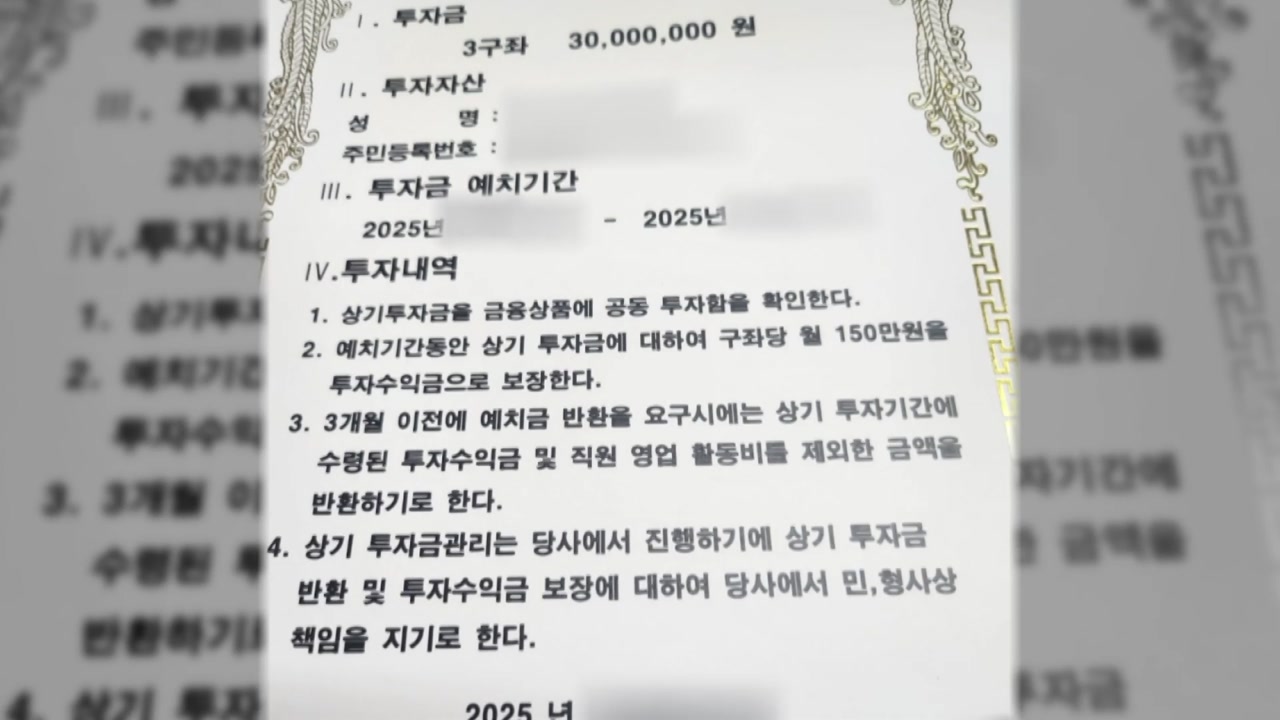 Ⅰ. 투자금
3구좌 30,000,000 원
Ⅱ. 투자자산
성 명 :
주민등록번호 :
Ⅲ. 투자금 예치기간
2025년 - 2025년
Ⅳ.투자내역
1. 상기투자금을 금융상품에 공동 투자함을 확인한다.
2. 예치기간동안 상기 투자금에 대하여 구좌당 월 150만원을
투자수익금으로 보장한다.
3. 3개월 이전에 예치금 반환을 요구시에는 상기 투자기간에
수령된 투자수익금 및 직원 영업 활동비를 제외한 금액을
반환하기로 한다.
4. 상기 투자금관리는 당사에서 진행하기에 상기 투자금
반환 및 투자수익금 보장에 대하여 당사에서 민,형사상
책임을 지기로 한다.
2025 년